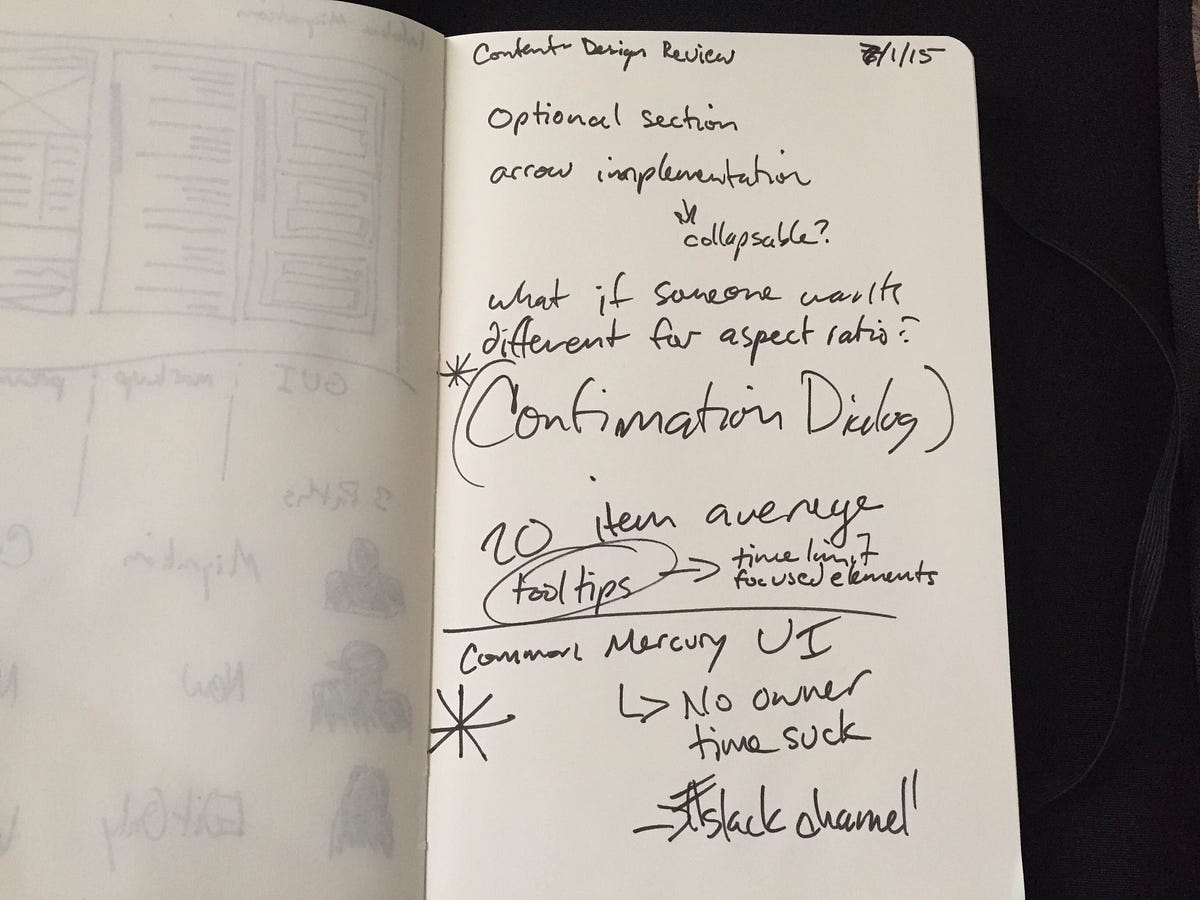 Content Design Review
/1/15
Optional section
arrow implementation
collapsable?
what if someone wants
different for aspect ratio?
(Confimation Dialog)
20 item average
tool tips
time limit
focused elements
Common Mercury UI
No owner
time suck
#slack channel
GUI ; mockup ;
3 Paths
Migration
New
Edit Only